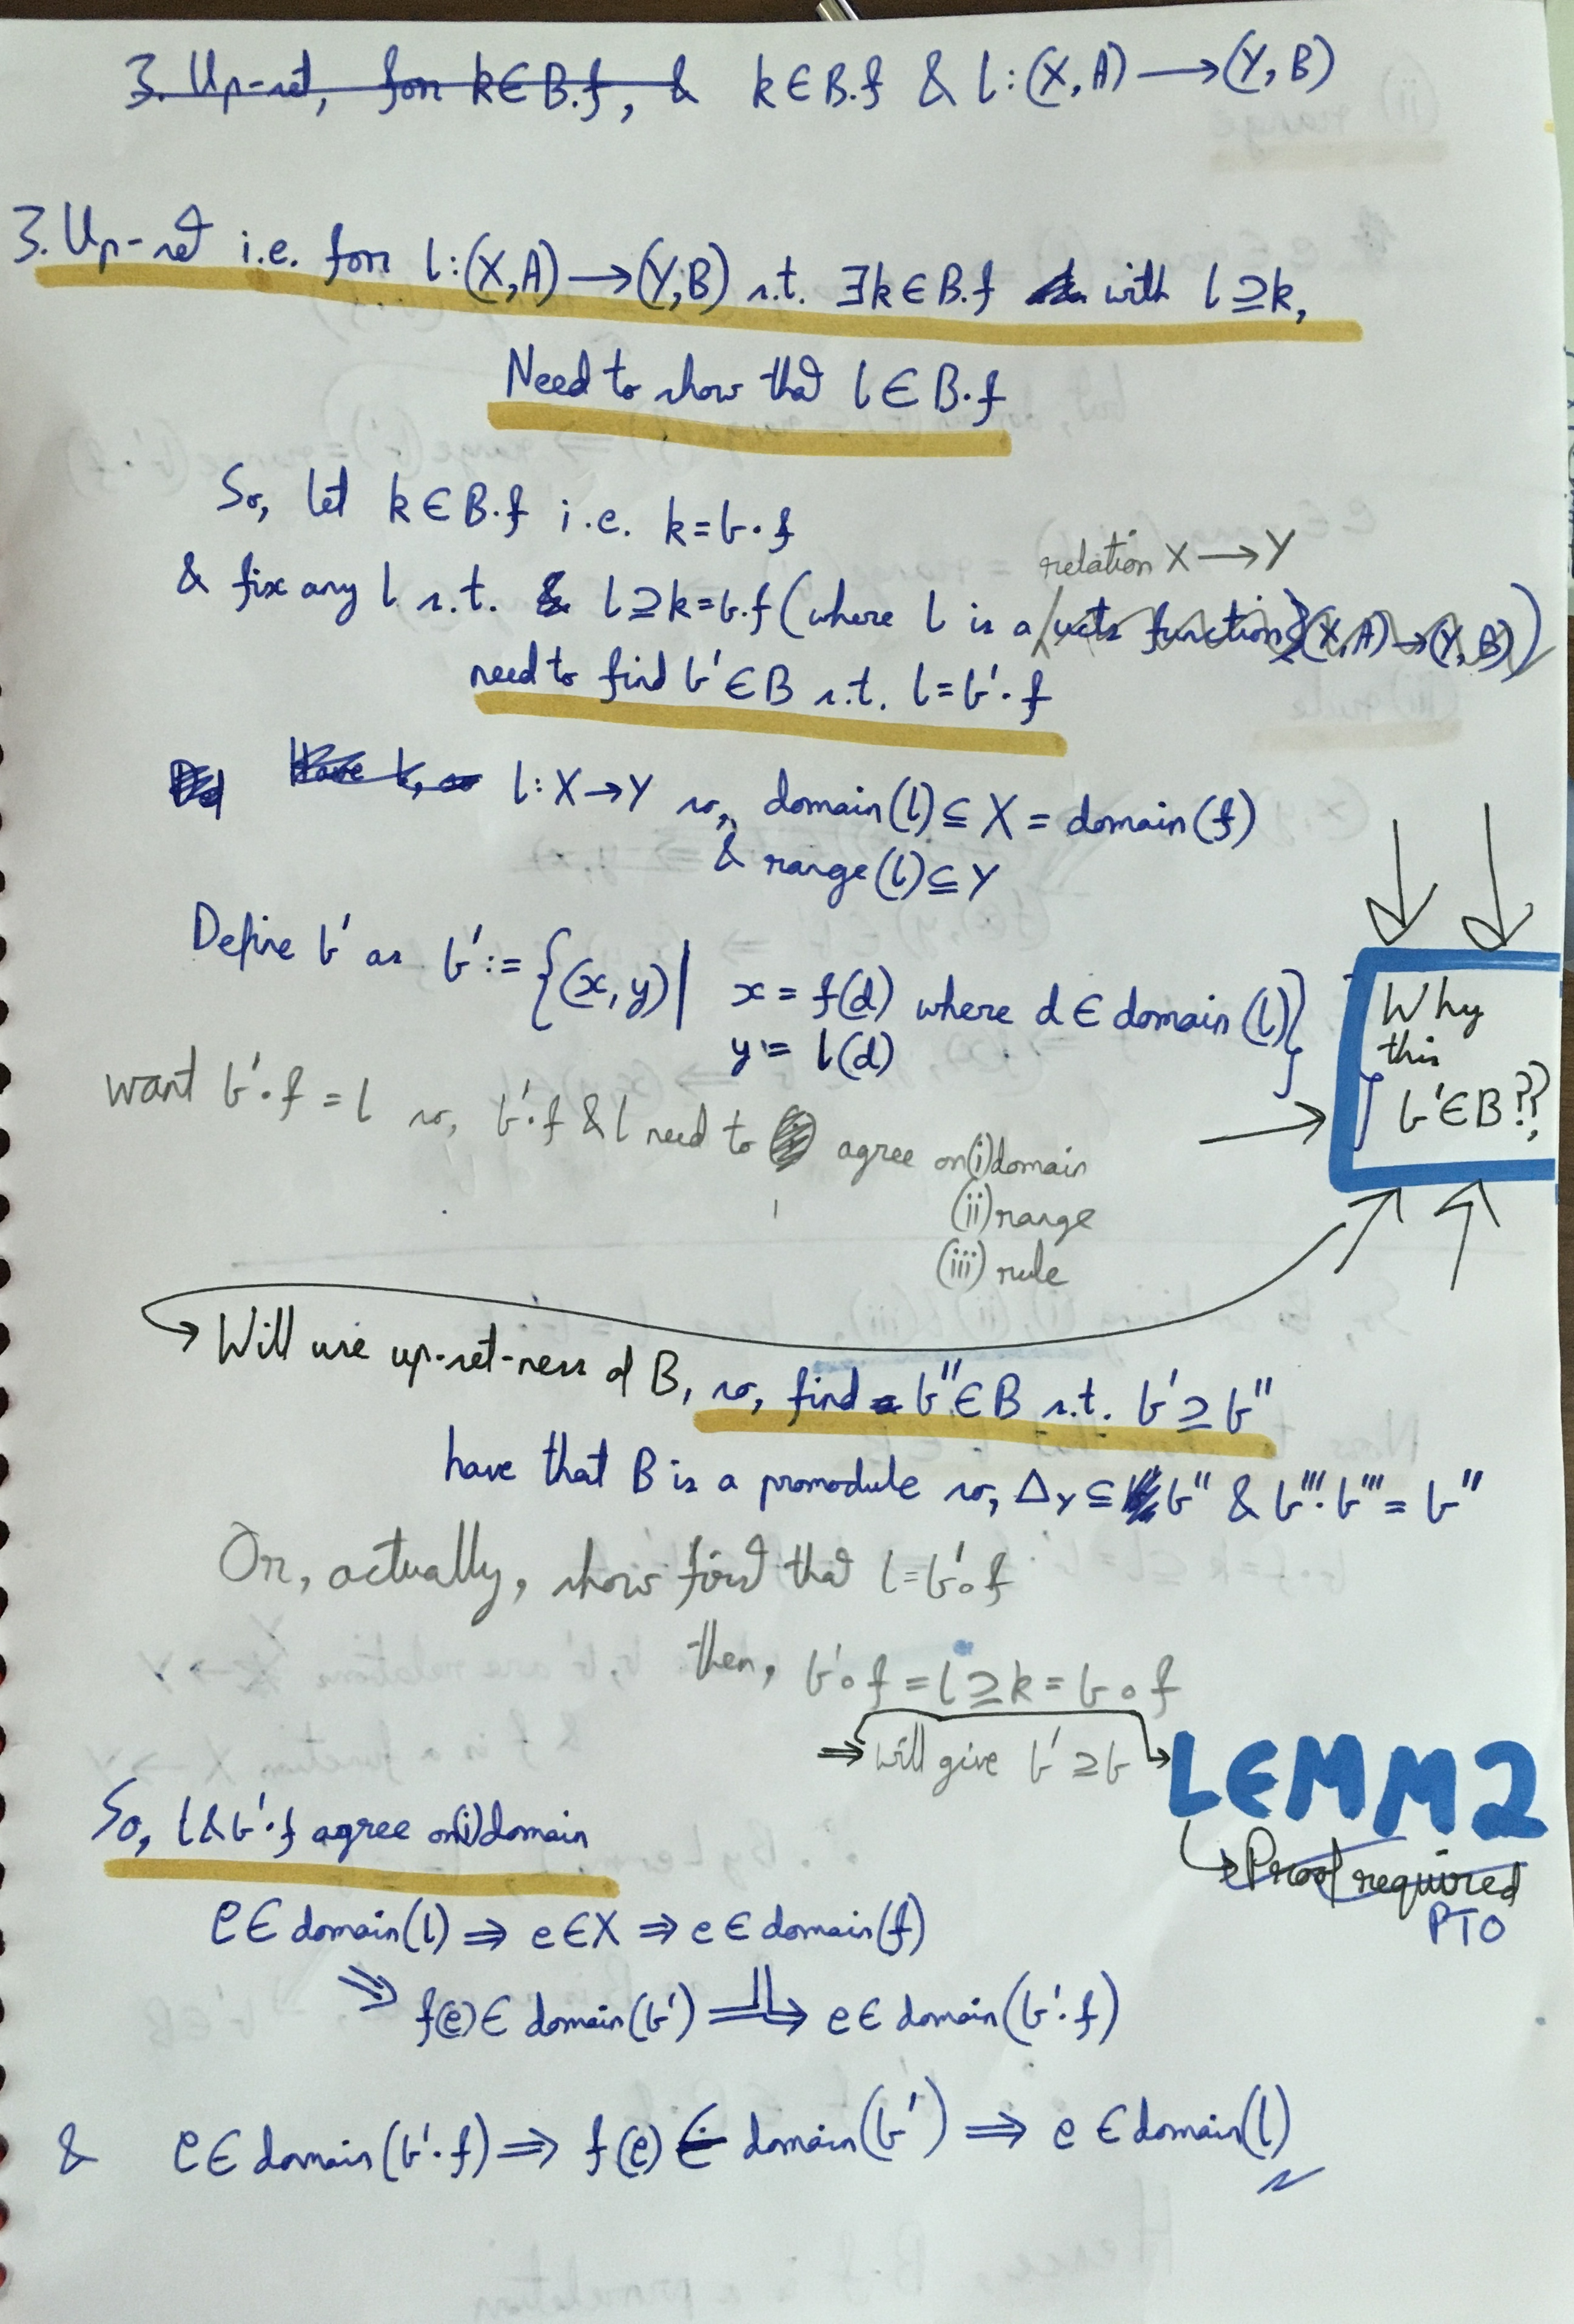 3. Up-set, for k∈B.f, & k∈B.f & l:(X,A)⟶(Y,B)
3. Up-set i.e. for l:(X,A)⟶(Y,B) s.t. ∃k∈B.f with l⊇k,
Need to show that l∈B.f
So, let k∈B.f i.e. k=b.f
relation X⟶Y
& fix any l s.t. l⊇k=b.f (where l is a ucts function (X,A)→(Y,B))
need to find b'∈B s.t. l=b'.f
Have l:X→Y so, domain(l)⊆X=domain(f)
& range(l)⊆Y
Define b' as b':={(x,y)| x=f(d) where d∈domain(l)}
y=l(d)
Why
this
b'∈B??
want b'.f=l so, b'.f & l need to agree on (i) domain
(ii) range
(iii) rule
Will use up-set-ness of B, so, find b''∈B s.t. b'⊇b''
have that B is a promodule so, Δ_Y⊆b'' & b'''.b'''=b''
Or, actually, show first that l=b'∘f
then, b'∘f=l⊇k=b∘f
⇒ will give b'⊇b
LEMM2
Proof required
PTO
So, l&b'.f agree on (i) domain
e∈domain(l)⇒e∈X⇒e∈domain(f)
⇒ f(e)∈domain(b') ⇒ e∈domain(b'.f)
& e∈domain(b'.f)⇒f(e)∈domain(b')⇒e∈domain(l)